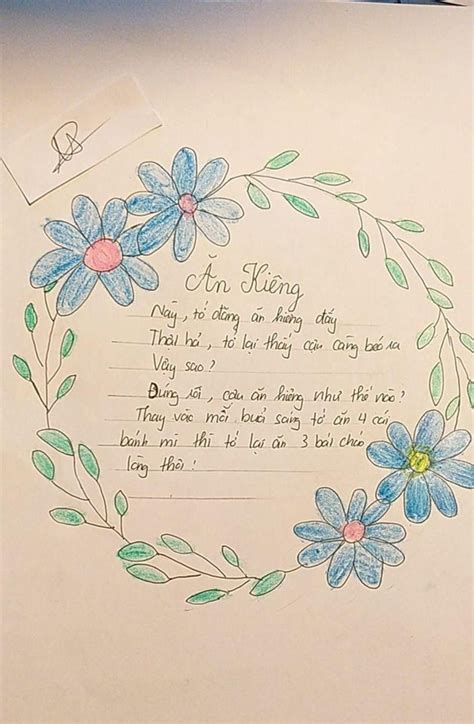 Ăn Kiêng
Này, tớ đang ăn kiêng đấy
Thật hả, tớ lại thấy cậu càng béo ra
Vậy sao?
Đúng rồi, cậu ăn kiêng như thế nào?
Thay vào mỗi buổi sáng tớ ăn 4 cái
bánh mì thì tớ lại ăn 3 bát cháo
lòng thôi!